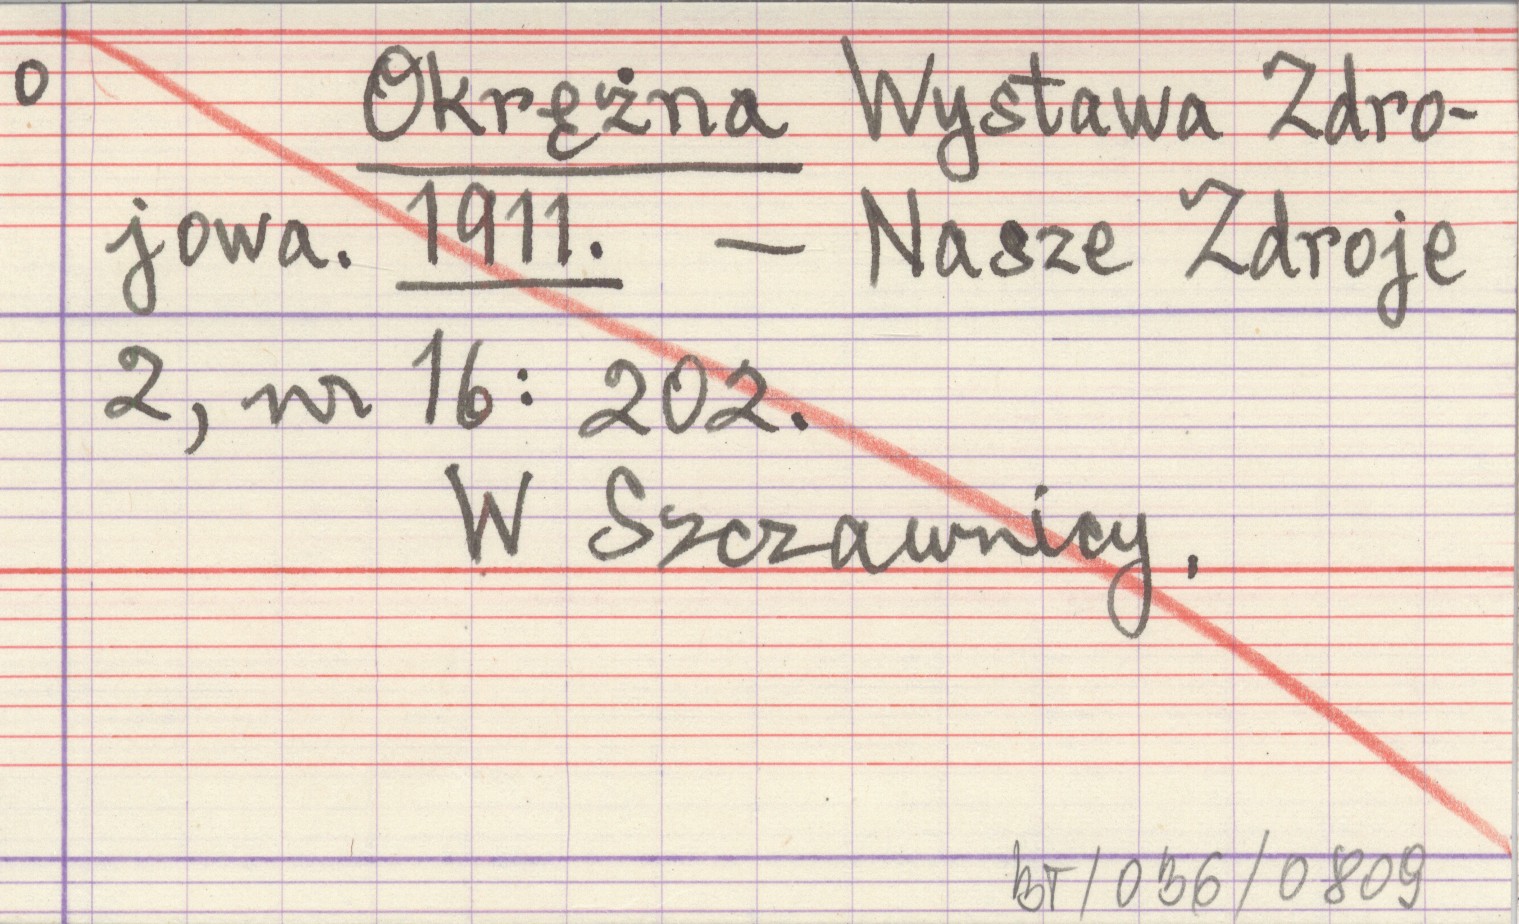 0
Okrężna Wystawa Zdro-
jowa. 1911. — Nasze Zdroje
2, nr 16: 202.
W Szczawnicy.
BT/036/0809